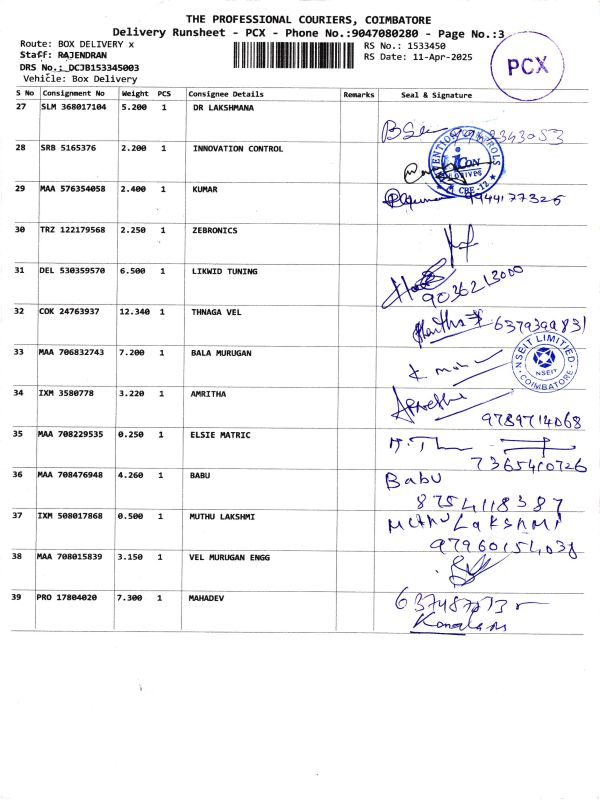 THE PROFESSIONAL COURIERS, COIMBATORE
Delivery Runsheet - PCX - Phone No.:9047080280 - Page No.:3
Route: BOX DELIVERY x
RS No.: 1533450
Staff: RAJENDRAN
RS Date: 11-Apr-2025
DRS No.: DCJB153345003
Vehicle: Box Delivery
PCX
S No Consignment No Weight PCS Consignee Details Remarks Seal & Signature
27 SLM 368017104 5.200 1 DR LAKSHMANA
28 SRB 5165376 2.200 1 INNOVATION CONTROL
29 MAA 576354058 2.400 1 KUMAR 9944177325
30 TRZ 122179568 2.250 1 ZEBRONICS
31 DEL 530359570 6.500 1 LIKWID TUNING
9036213000
32 COK 24763937 12.340 1 THNAGA VEL
6379399831
33 MAA 706832743 7.200 1 BALA MURUGAN
NSEIT LIMITIED NSEIT COIMBATORE
34 IXM 3580778 3.220 1 AMRITHA
9789714068
35 MAA 708229535 0.250 1 ELSIE MATRIC
7365410726
36 MAA 708476948 4.260 1 BABU Babu
8754118387
37 IXM 508017868 0.500 1 MUTHU LAKSHMI MUTHU LAKSHMI
38 MAA 708015839 3.150 1 VEL MURUGAN ENGG
39 PRO 17804020 7.300 1 MAHADEV